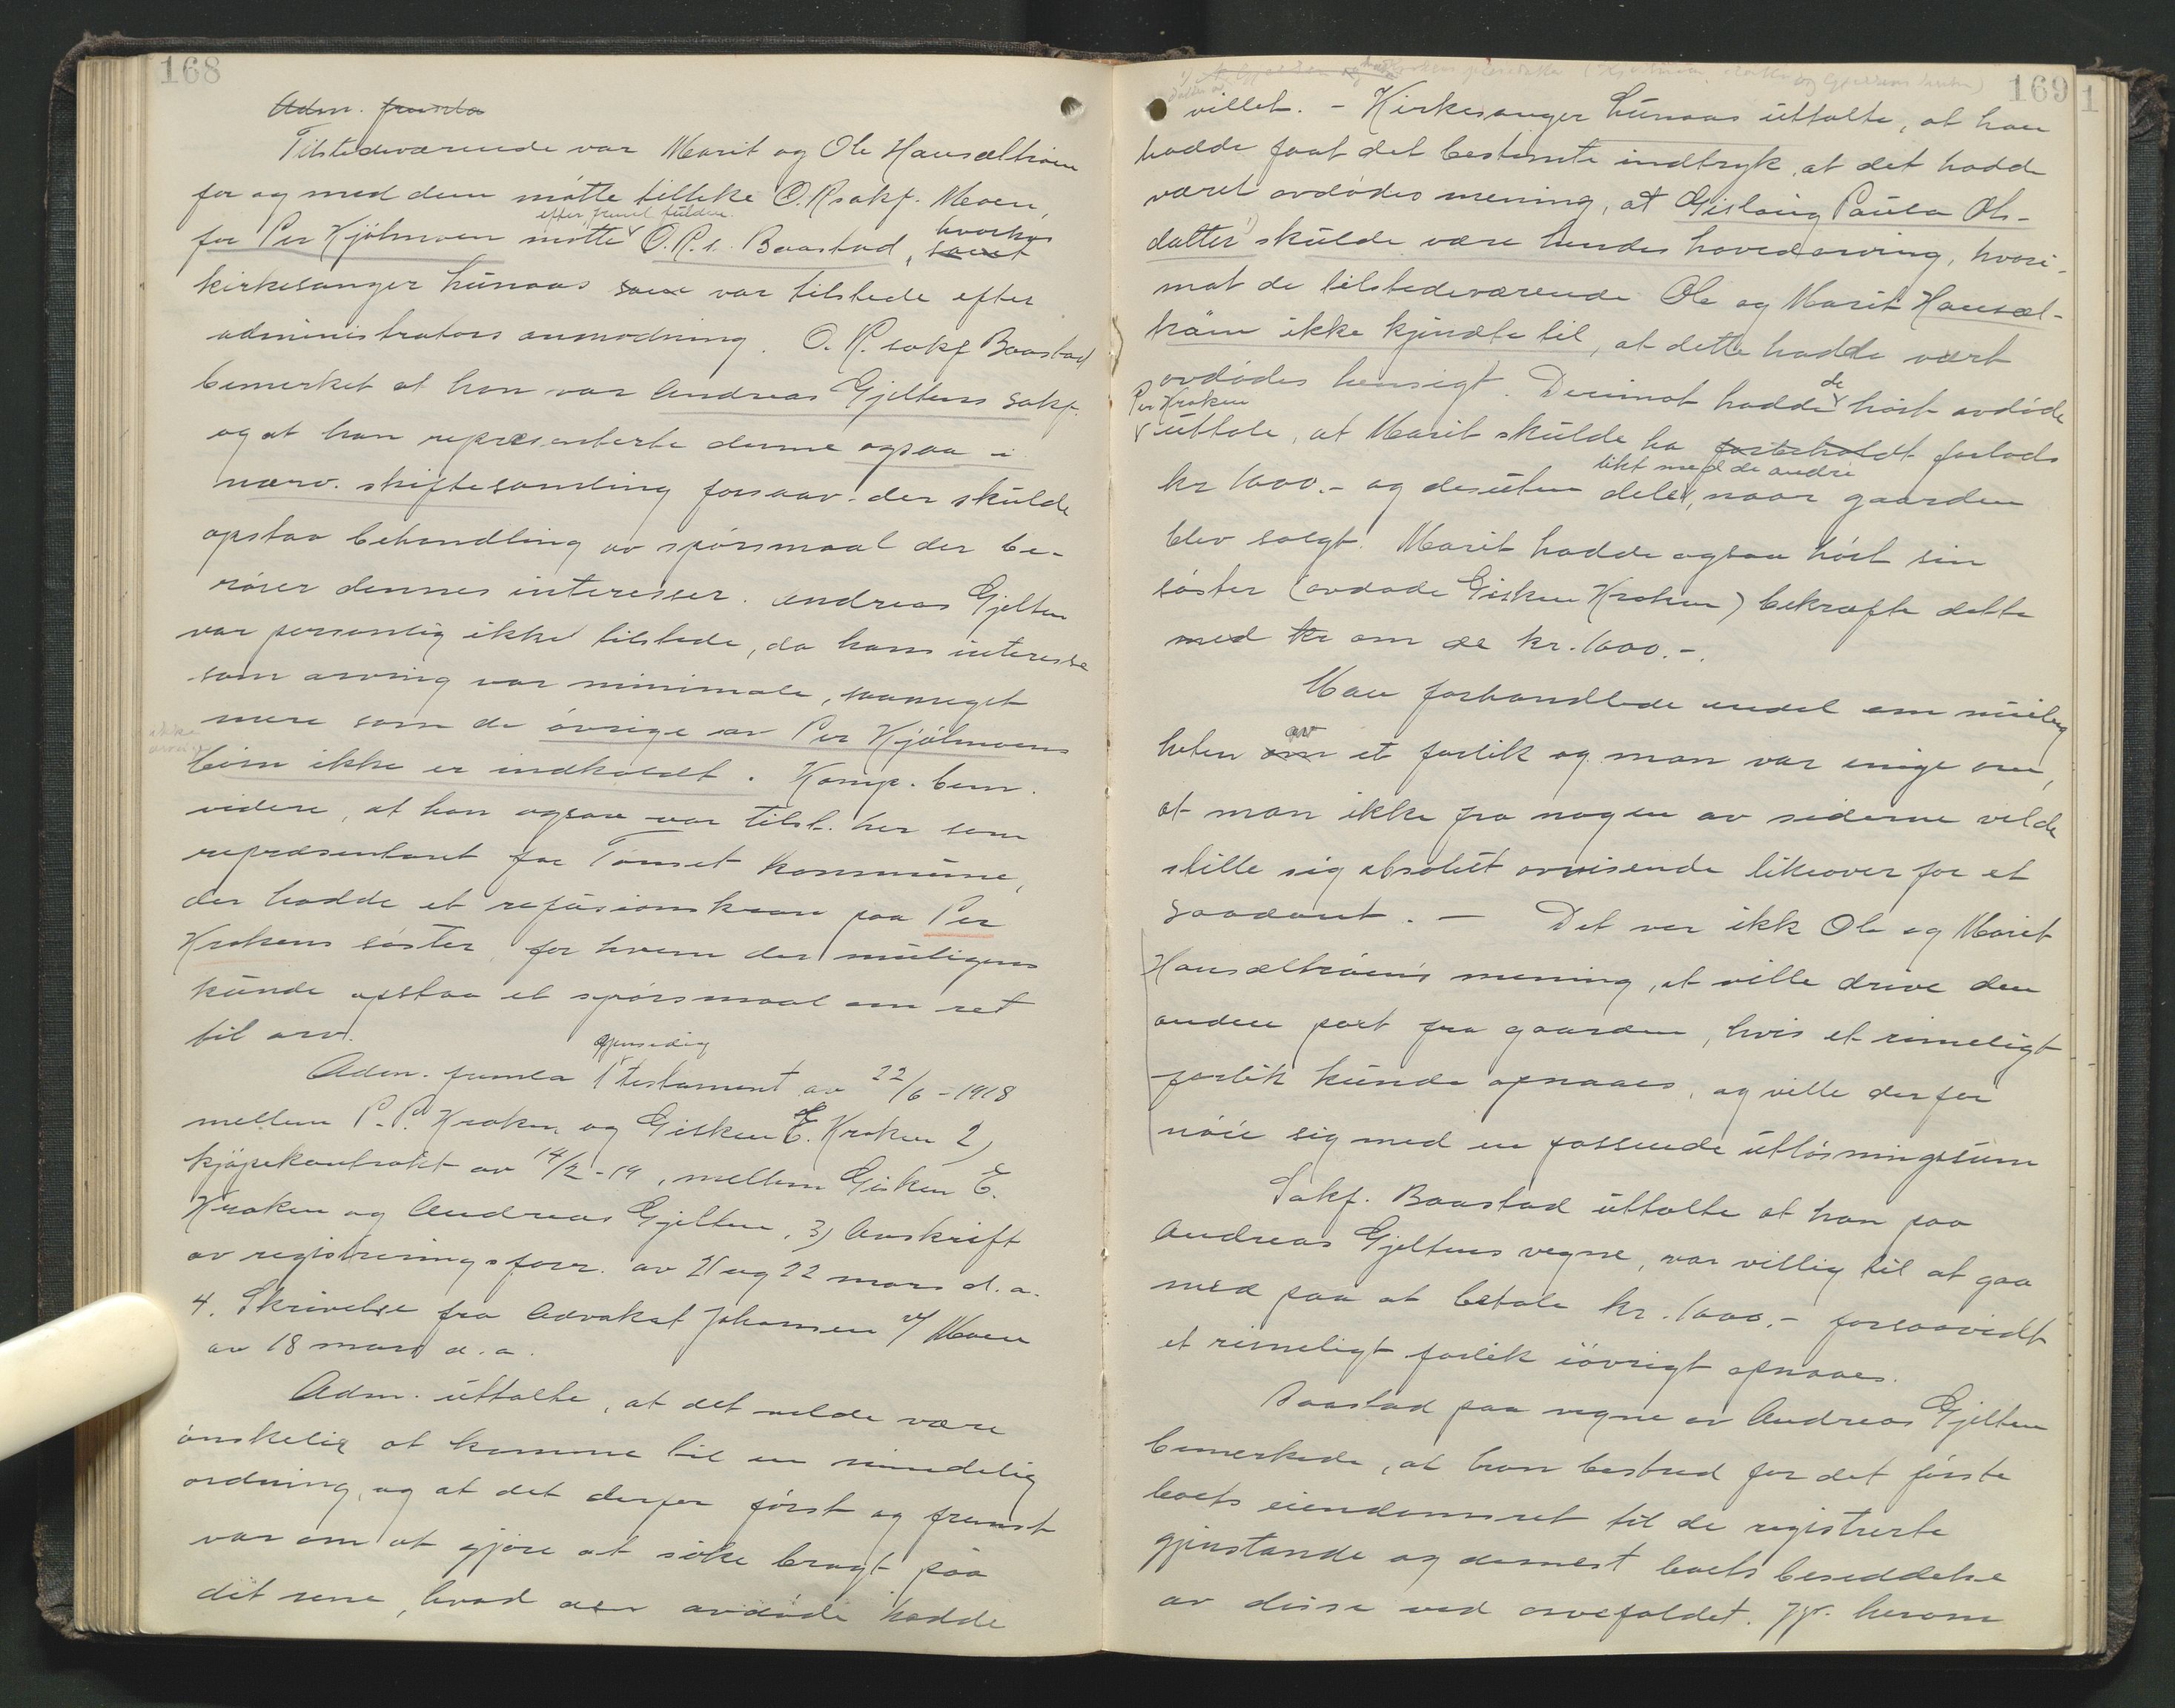 168
Adm. fremla
Tilstedeværende var Marit og Ole Hansæltrøen
for og med dem møtte tillike O.R.sakf. Moen,
for Per Kjølmoen møtte efter freml. fuldm. O.R.s. Baastad, samt hvorhos
kirkesanger Hunaas som var tilstede efter
administrators anmodning. O.R.sakf Baastad
bemerket at han var Andreas Gjeltens sakf.
og at han repræsenterte denne ogsaa i
nærv. skiftesamling forsaav. der skulde
opstaa behandling av spørsmaal der be-
rører dennes interesser. Andreas Gjelten
var personlig ikke tilstede, da hans interesse
som arving var minimale, saameget
mere som de øvrige av Per Kjølmoens
ikke
arvinger
børn ikke er indkaldt. Komp. bem.
videre, at han ogsaa var tilst. her som
repræsentant for Tønset kommune,
der hadde et refusionskrav paa Per
Krokens søster, for hvem der muligens
kunde opstaa et spørsmaal om ret
til arv.
Adm. fremla 1 gjensidig testament av 22/6-1918
mellem P.P. Kroken og Gisken E. Kroken 2)
kjøpekontrakt av 14/2-19, mellem Gisken E.
Kroken og Andreas Gjelten, 3) Avskrift
av registreringsforr. av 21 og 22 mars d.a.
4. Skrivelse fra Advokat Johansen v/ Moen
av 18 mars d.a.
Adm. uttalte, at det vilde være
ønskelig at komme til en mindelig
ordning, og at det derfor først og fremst
var om at gjøre at søke bragt paa
det rene, hvad den avdøde hadde
169
1
villet. - Kirkesanger Hunaas uttalte, at han
hadde faat det bestemte indtryk, at det hadde
været avdødes mening, at Gislaug Paula Ols-
datter 1) skulde være hendes hovedarving, hvori-
mot de tilstedeværende Ole og Marit Hansæl-
trøen ikke kjendte til, at dette hadde vært
avdødes hensigt. Derimot hadde de hørt avdøde
Per Kroken
uttale, at Marit skulde ha forbeholdt forlods
kr 1000.- og desuten dele likt med de andre, naar gaarden
blev solgt. Marit hadde ogsaa hørt sin
søster (avdøde Gisken Kroken) bekræfte dette
med kr om de kr. 1000.-.
Man forhandlede endel om mulig
heten om av et forlik og man var enige om,
at man ikke fra nogen av siderne vilde
stille sig absolut avvisende likeover for et
saadant. - Det var ikk Ole og Marit
Hansæltrøens mening, at ville drive den
anden part fra gaarden, hvis et rimeligt
forlik kunde opnaaes, og ville derfor
nøie sig med en passende utløsningssum
Sakf. Baastad uttalte at han paa
Andreas Gjeltens vegne, var villig til at gaa
med paa at betale kr. 1000.- forsaavidt
et rimeligt forlik iøvrigt opnaaes.
Baastad paa vegne av Andreas Gjelten
bemerkede, at han bestred for det første
boets eiendomsret til de registrerte
gjenstande og dernest boets besiddelse
av disse ved arvefaldet. Jfr. herom